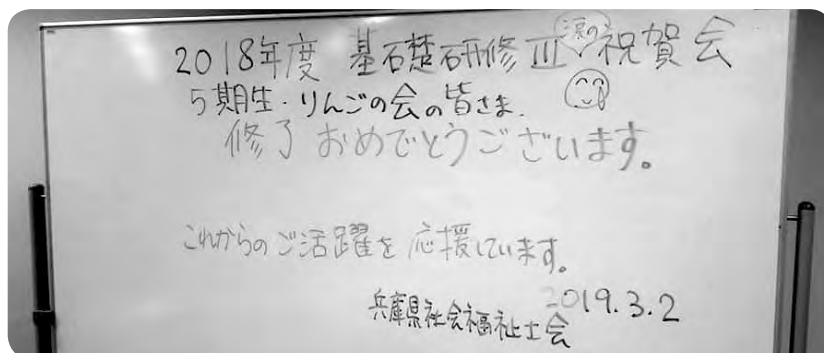 2018年度 基礎研修Ⅲ 涙の祝賀会
5期生・りんごの会の皆さま.
修了おめでとうございます。
これからのご活躍を応援しています。
2019.3.2
兵庫県社会福祉士会